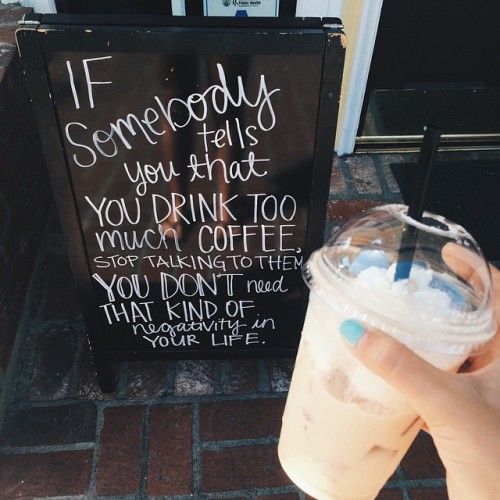 IF
Somebody
tells
you that
YOU DRINK TOO
much COFFEE,
STOP TALKING TO THEM
YOU DON'T need
THAT KIND OF
negativity in
YOUR LIFE.